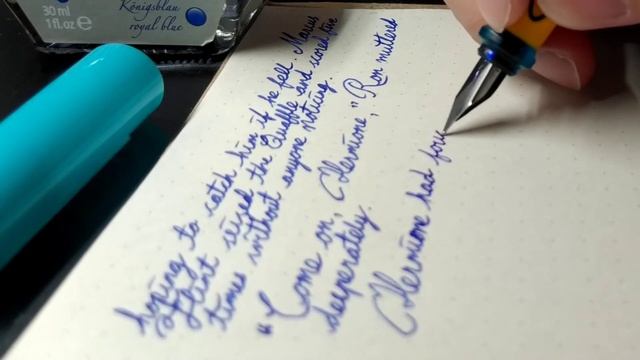 Königsblau
30 ml
1 fl.oz e
royal blue
hoping to catch him if he fell. Marcus
Flint seized the Quaffle and scored five
times without anyone noticing.
"Come on, Hermione," Ron muttered
desperately.
Hermione had fou